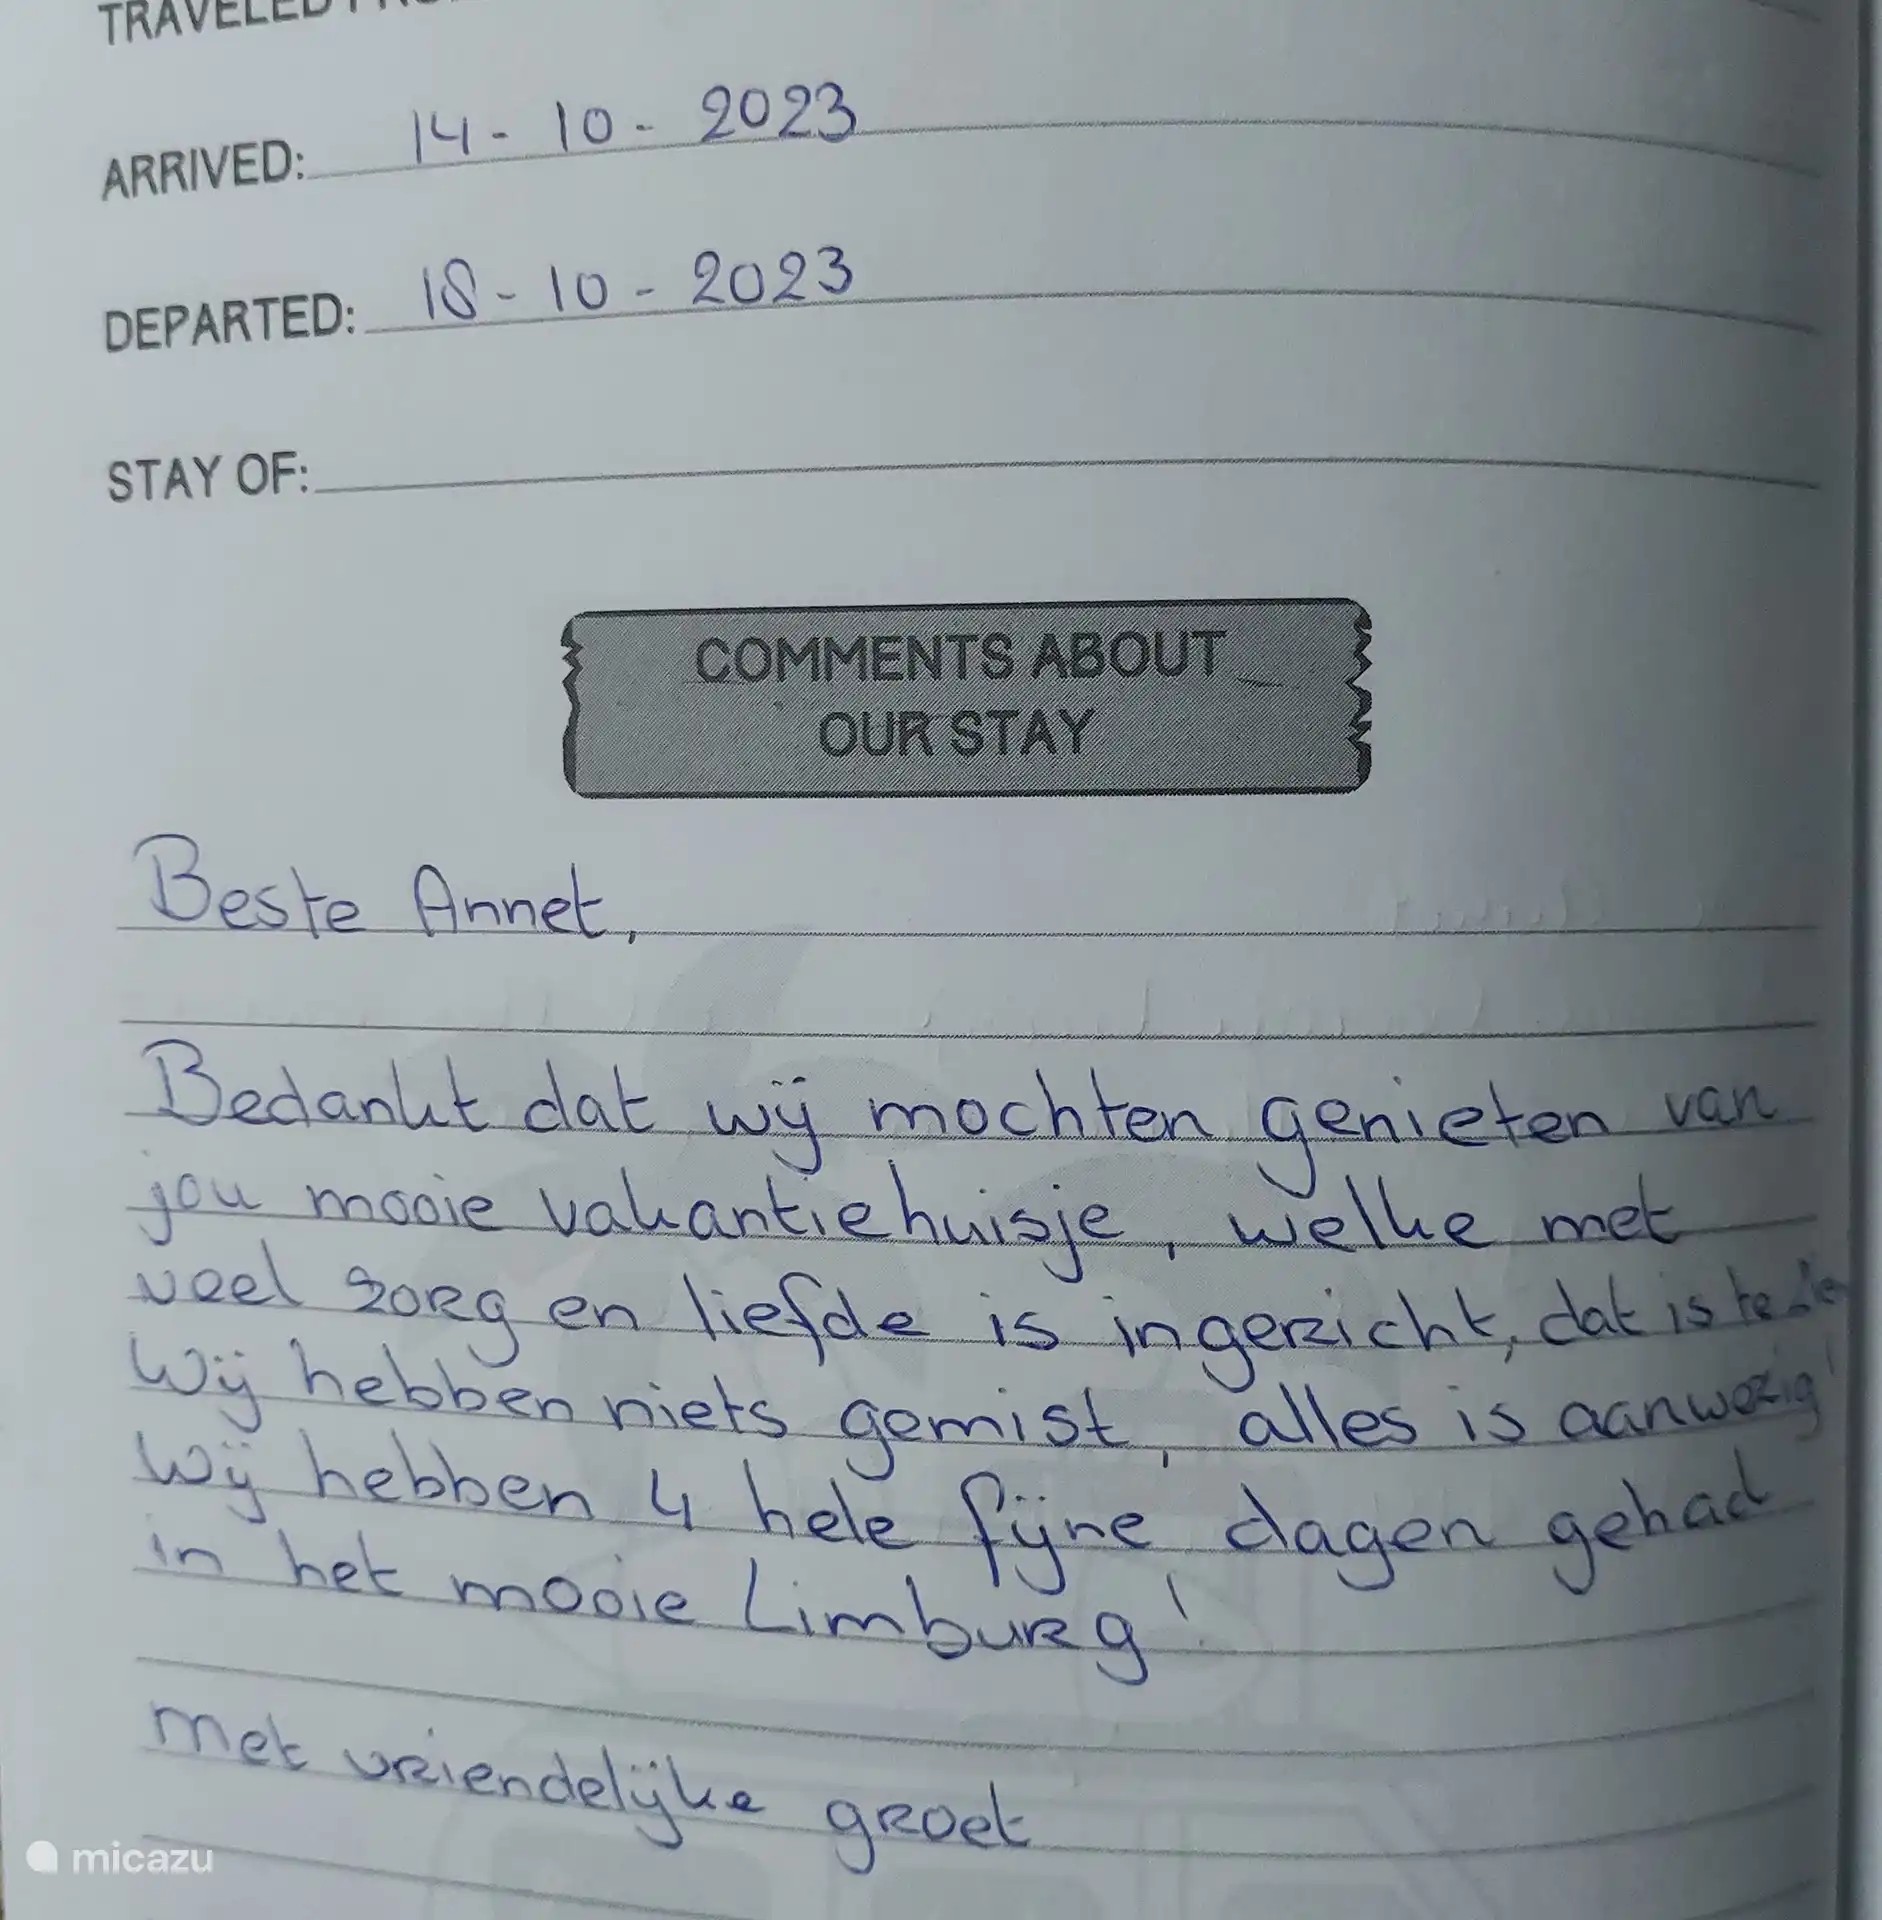 TRAVELED
ARRIVED: 14-10-2023
DEPARTED: 18-10-2023
STAY OF:
COMMENTS ABOUT
OUR STAY
Beste Annet,
Bedankt dat wij mochten genieten van
jou mooie vakantiehuisje, welke met
veel zorg en liefde is ingericht, dat is te zien
Wij hebben niets gemist, alles is aanwezig!
Wij hebben 4 hele fijne dagen gehad
in het mooie Limburg!
met vriendelijke groet
micazu